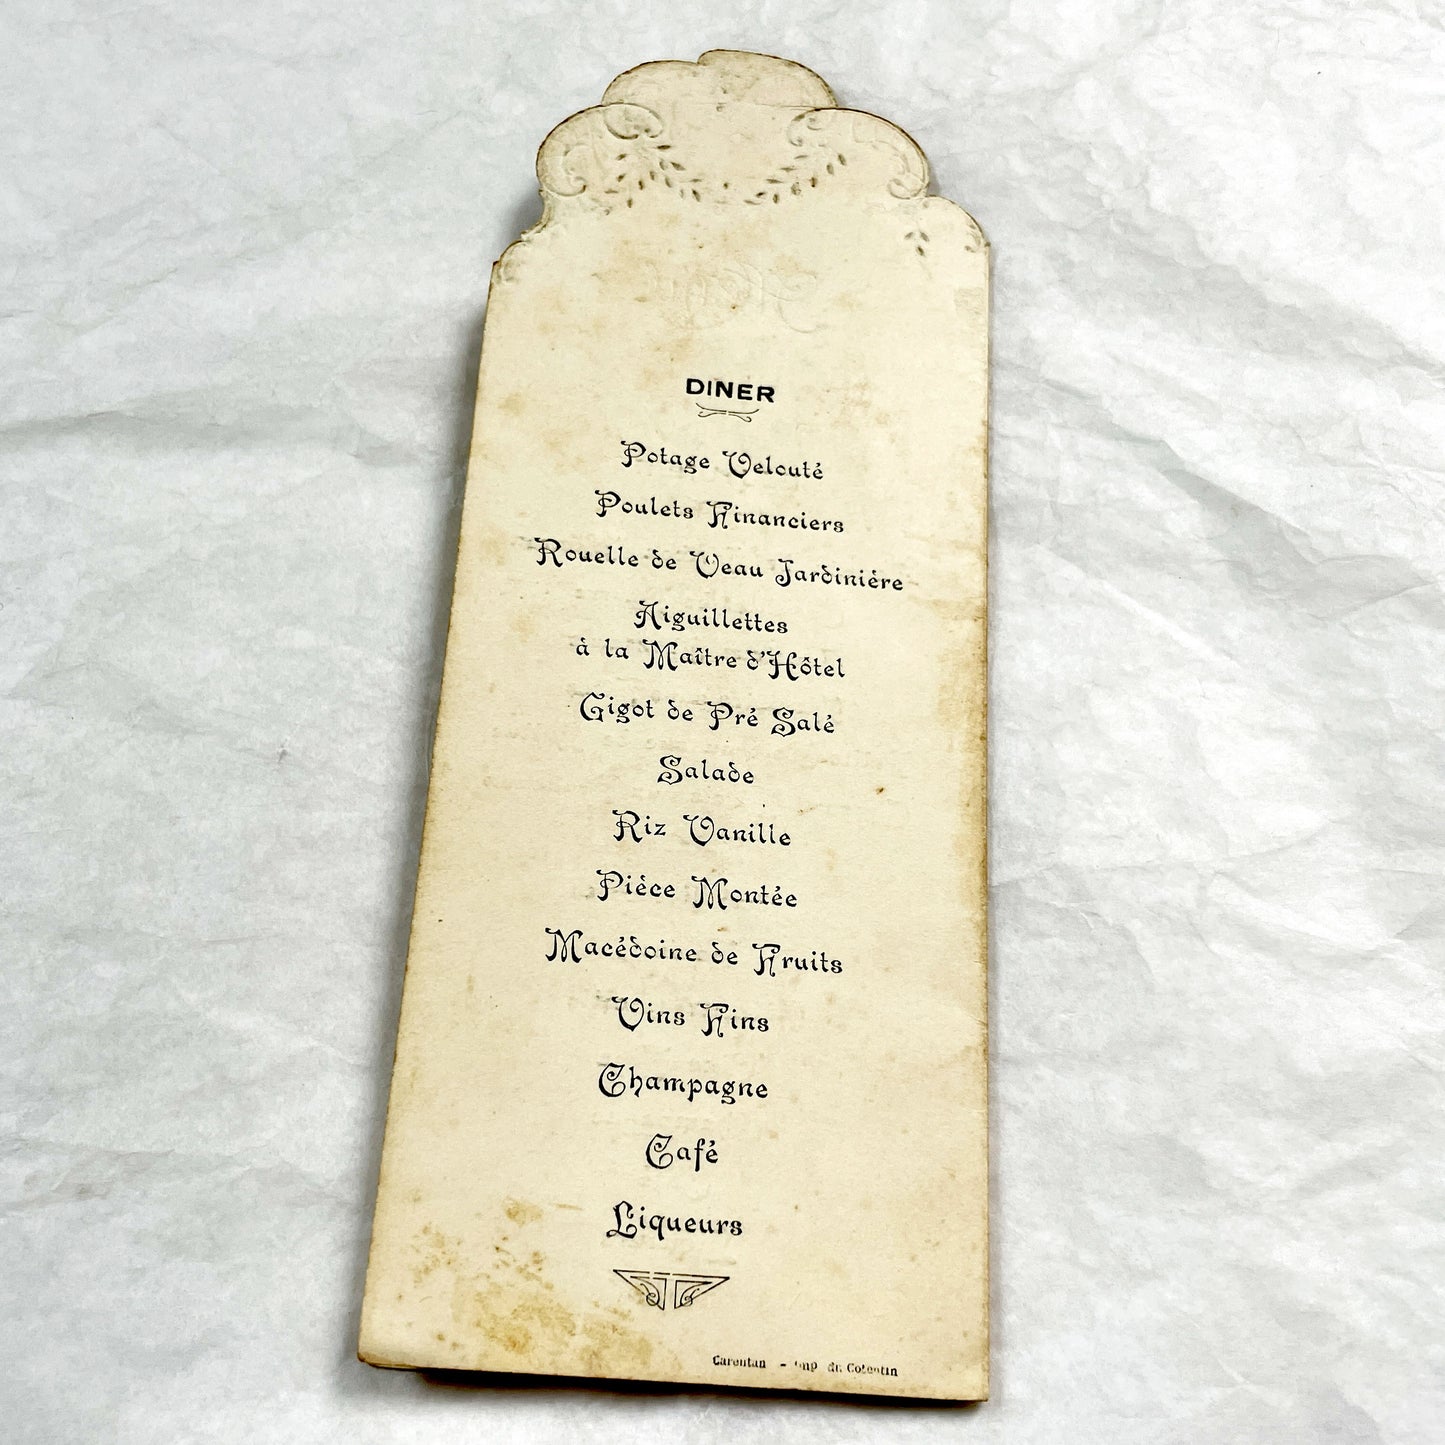 Menu
DINER
Potage Velouté
Poulets Financiers
Rouelle de Veau Jardinière
Aiguillettes
à la Maître d'Hôtel
Gigot de Pré Salé
Salade
Riz Vanille
Pièce Montée
Macédoine de Fruits
Vins Fins
Champagne
Café
Liqueurs
Carentan - Imp du Cotentin